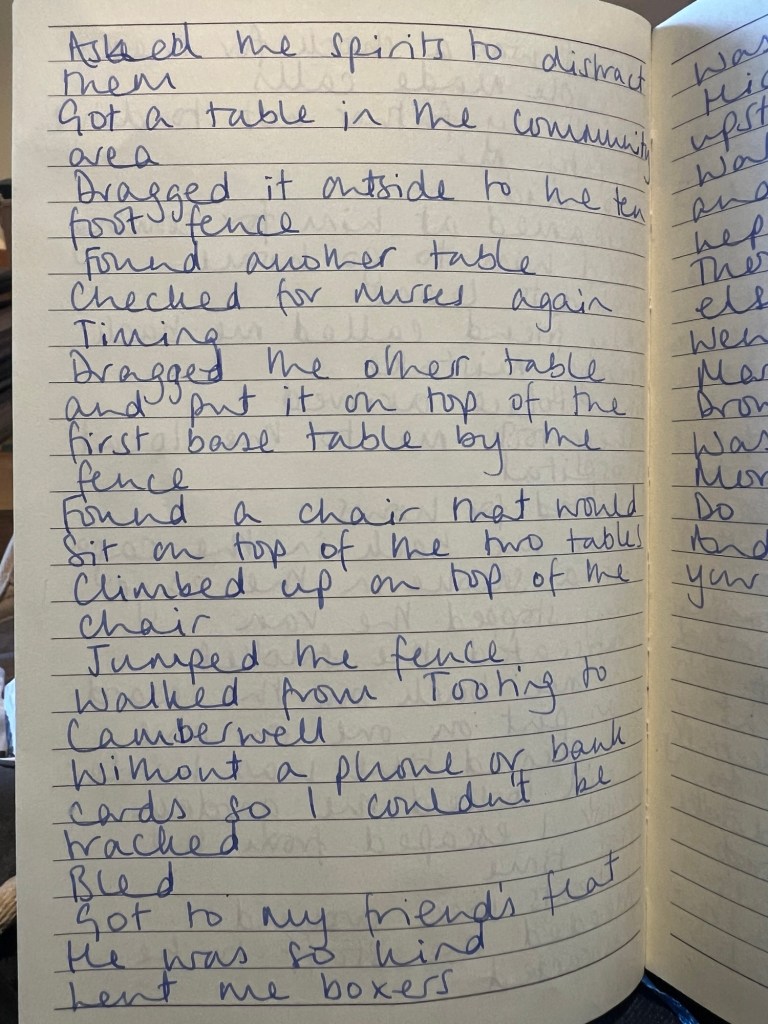 Asked the spirits to distract
them
Got a table in the community
area
Dragged it outside to the ten
foot fence
Found another table
Checked for nurses again
Timing
Dragged the other table
and put it on top of the
first base table by the
fence
Found a chair that would
sit on top of the two tables
Climbed up on top of the
chair
Jumped the fence
Walked from Tooting to
Camberwell
Without a phone or bank
cards so I couldn't be
tracked
Bled
Got to my friend's flat
He was so kind
Lent me boxers
Was
upst
and
Ther
els
Wen
Was
Mor
Do
And
your